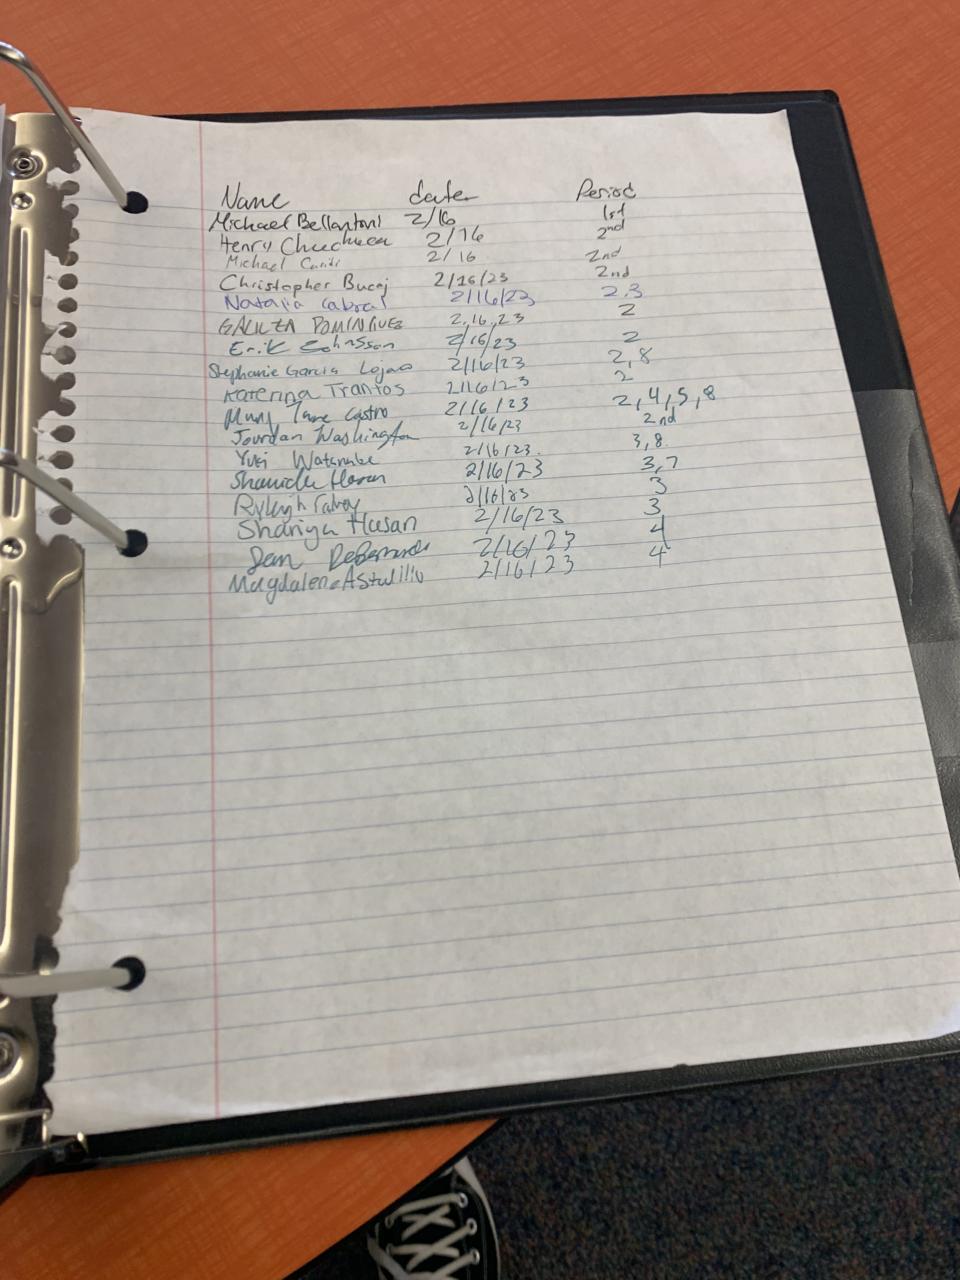 Name date Period
Michael Bellantoni 2/16 1st
Henry 2/16 2nd
Michael 2/16 2nd
Christopher Bucaj 2/16/23 2nd
Natalia Cabral 2/16/23 2.3
DOMINGUEZ 2.16.23 2
Erik Johnsson 2/16/23 2
Stephanie Garcia Lojano 2/16/23 2,8
Katerina Trantos 2/16/23 2
Castro 2/16/23 2,4,5,8
Jourdan Washington 2/16/23 2nd
Yuki Watanabe 2/16/23. 3,8
2/16/23 3,7
Ryleigh 2/16/23 3
Shariya Hasan 2/16/23 3
2/16/23 4
Magdalena 2/16/23 4